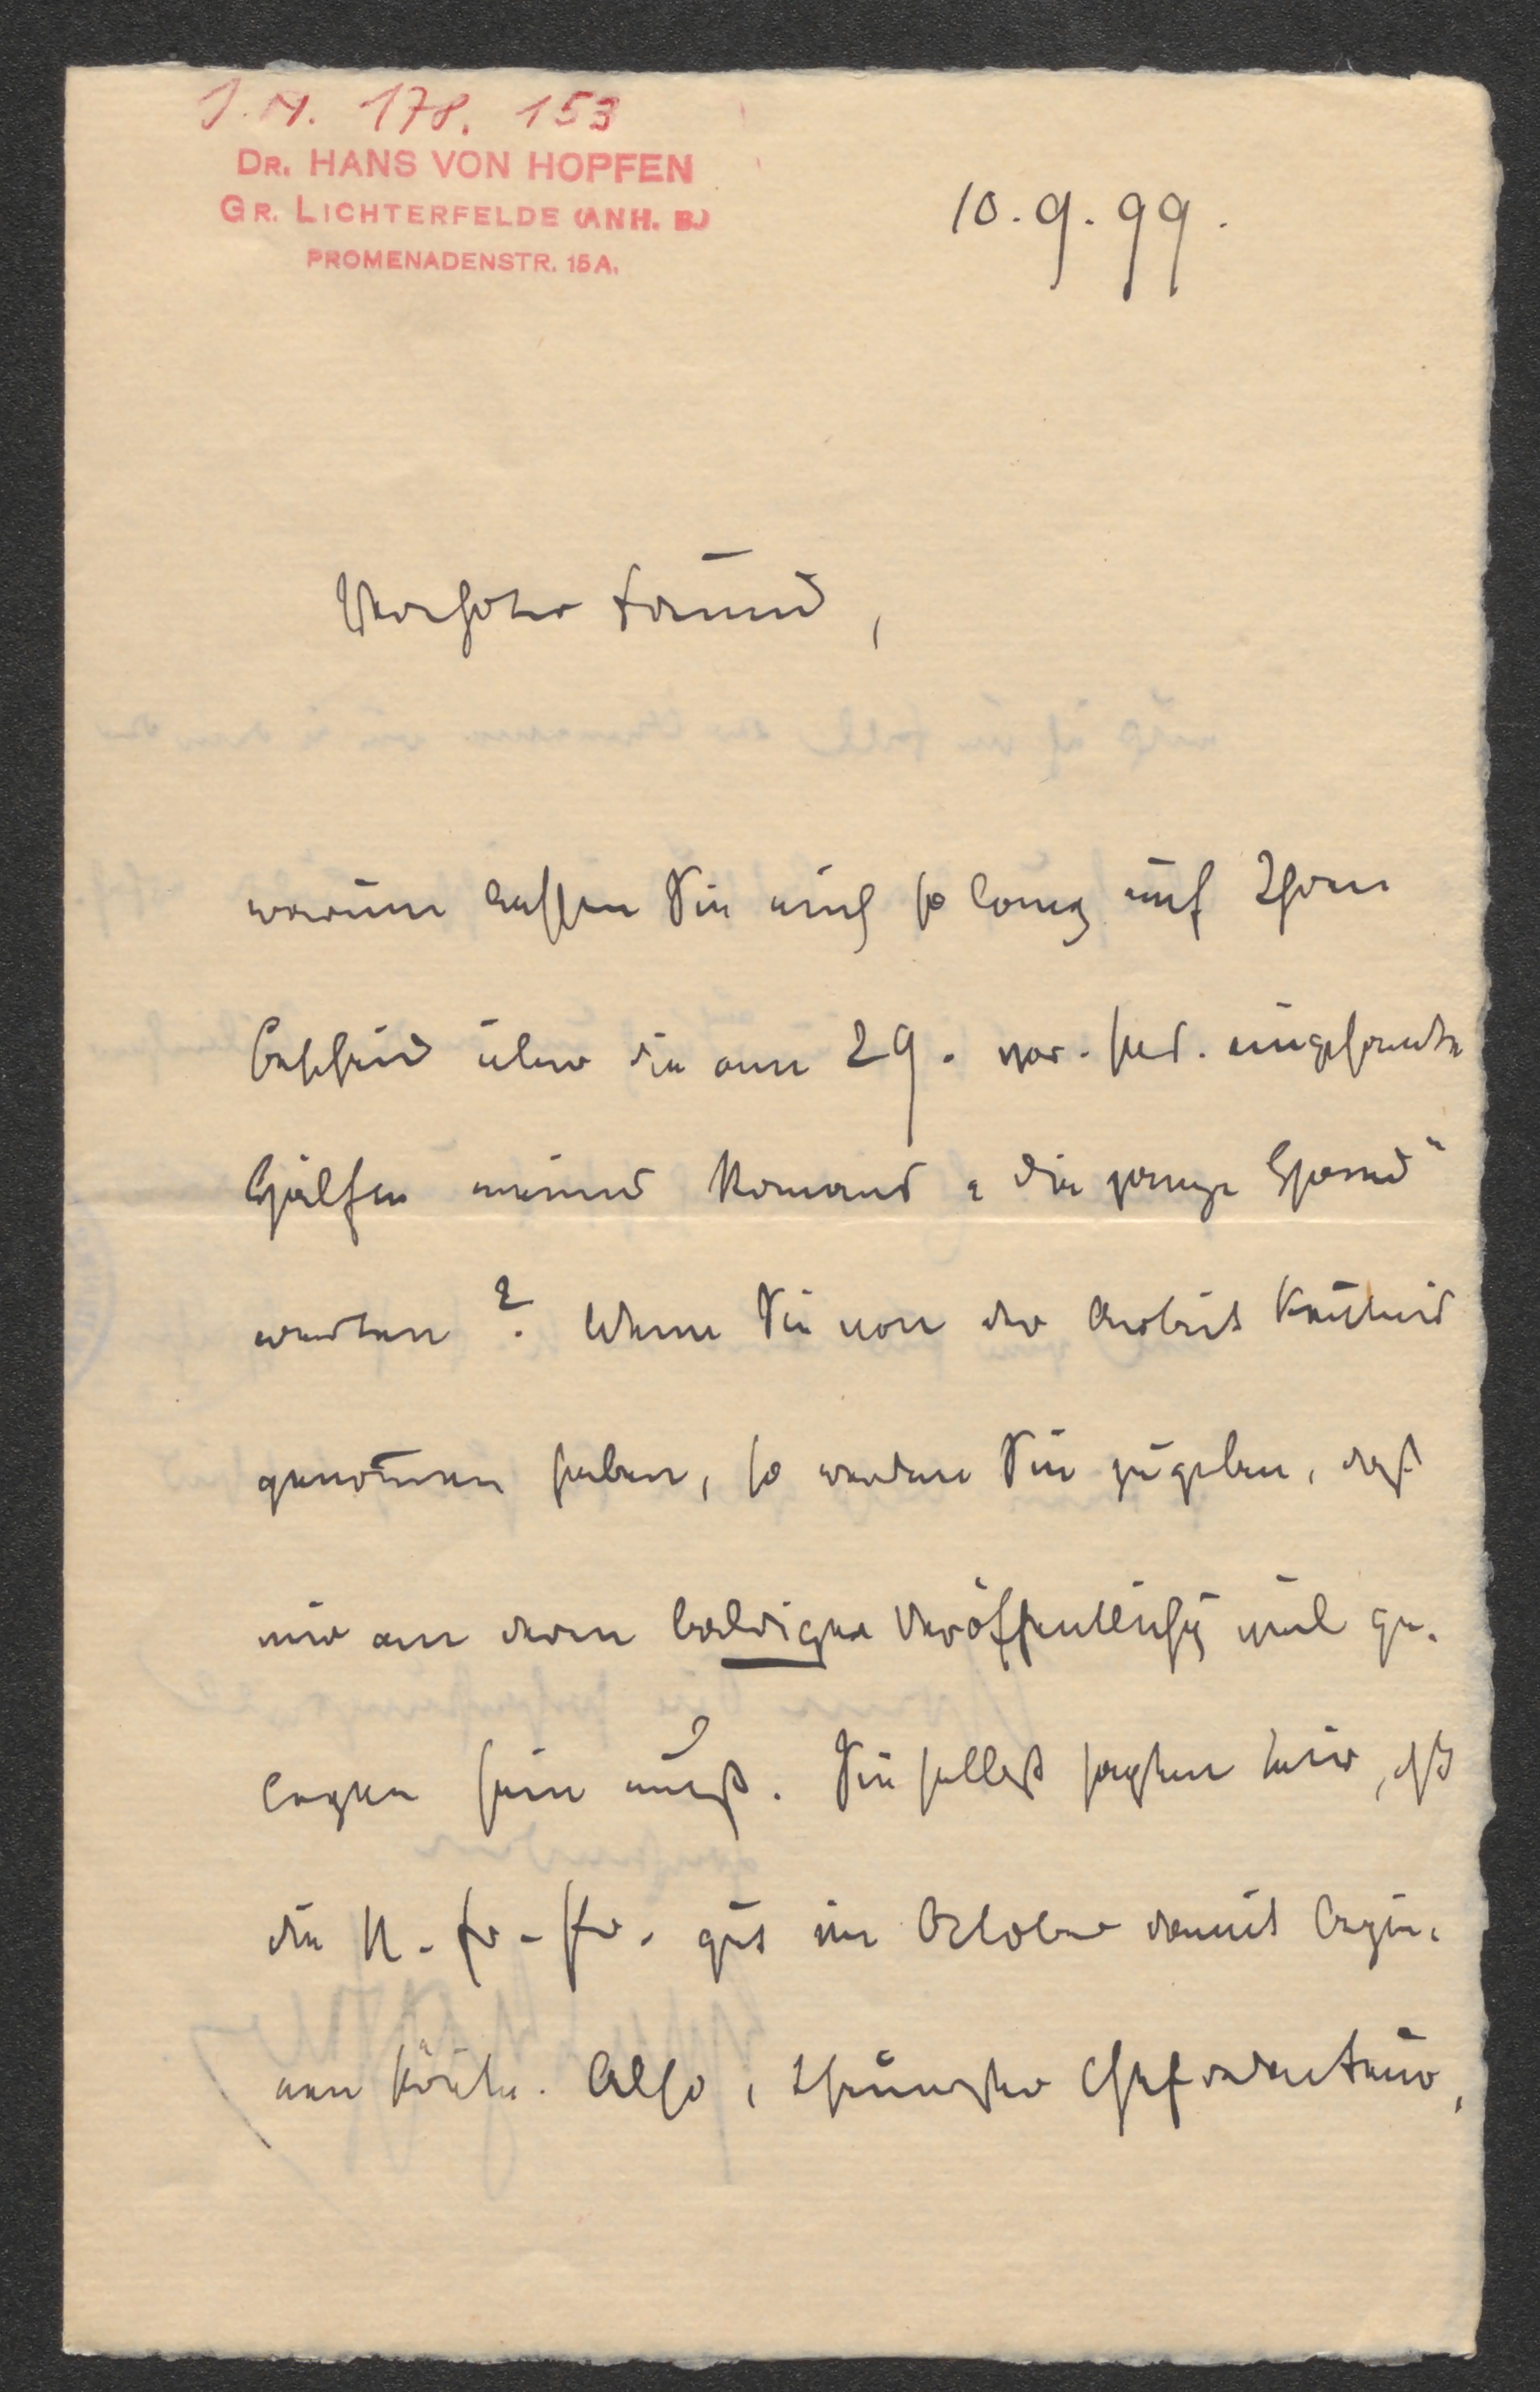 J.N. 178.153
DR. HANS VON HOPFEN
GR. LICHTERFELDE (ANH. B.)
PROMENADENSTR. 15A.
10.9.99.
Verehrter Freund,
warum lassen Sie mich so lang auf Ihren
Bescheid über die am 29. vor. eingesandte
Hälfte meines Romans „die ganze Hand“
warten? Wenn Sie von der Arbeit Kentnis
genom̄en haben, so werden Sie zugeben, daß
mir an deren baldigen Veröffentlichg viel ge-
legen sein muß. Sie selbst sagten mir, dß
die N. fr. Pr. gut im October damit begin-
nen könte. Also, Chefredenteur,